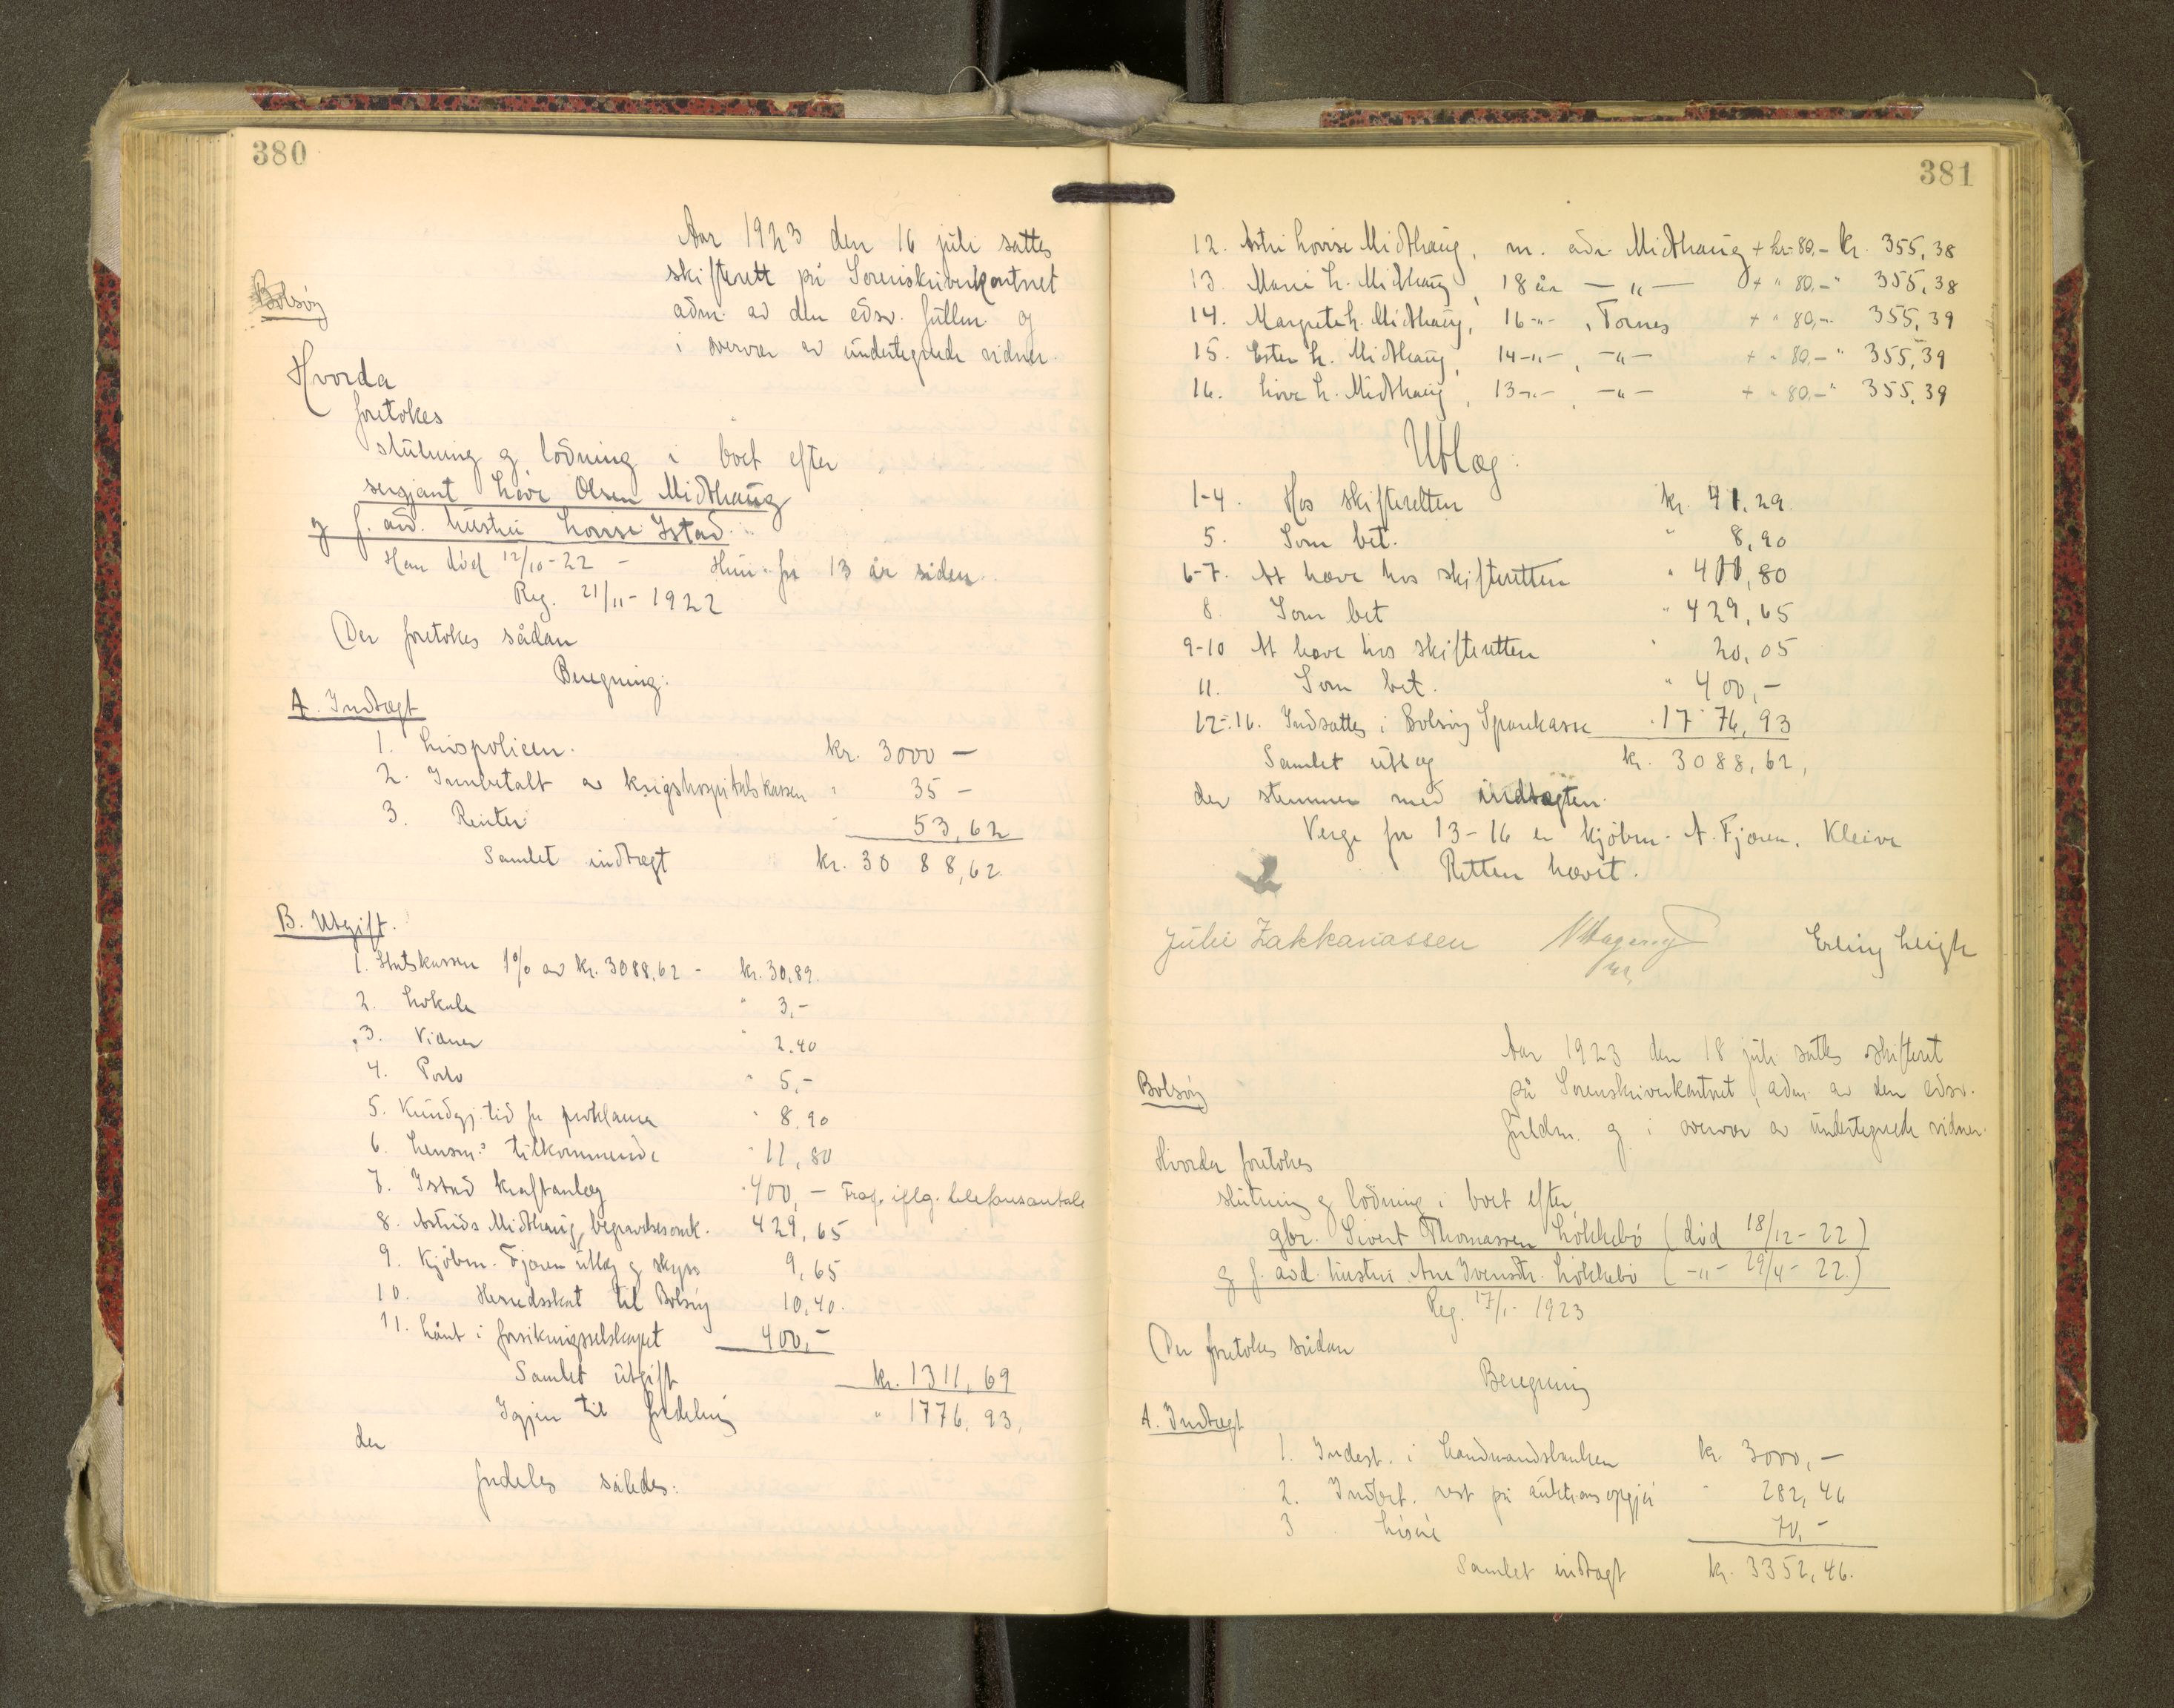 380
Aar 1923 den 16 juli sattes
skifterett på Sorenskriverkontoret
Bolsøy
adm. av den edsv. fullm. og
i overvær av undertegnede vidner.
Hvorda
foretokes
slutning og lodning i boet efter
sergjant Love Olsen Midthaug
og f. avd. hustru Lovise Istad.
Han död 12/10-22 - Hun for 13 år siden.
Reg. 21/11-1922
Der foretokes sådan
Beregning:
A. Indtægt
1. Livspolicen. kr. 3000 -
2. Innbetalt av krigshospitalskassen " 35 -
3. Renter " 53,62
Samlet indtægt kr. 3088,62
B. Utgift.
1. Statskassen 1% av kr. 3088,62 - kr. 30,89.
2. Lokale " 3,-
3. Vidner " 2.40
4. Porto " 5,-
5. Kundgj. tid for proklama " 8,90
6. Lensm.s tilkommende " 11,80
7. Istad kraftanlæg " 400,- Frag. iflg. telefonsamtale
8. Astrids Midthaug, begravelsesomk. 429,65
9. Kjöbm. Fjæren utlæg og skyss 9,65
10. Herredsskat til Bolsøy 10,40.
11. Lånt i forsikringsselskapet 400,-
Samlet utgift kr. 1311,69
Igjen til fordeling " 1776,93,
der
fordeles således:
381
12. Astri Lovise Midthaug, m. adr. Midthaug + kr. 80,- kr. 355,38
13. Marie L. Midthaug, 18 år -"- + " 80,- " 355,38
14. Margrete L. Midthaug, 16 -"-, Tornes + " 80,- " 355,39
15. Ester L. Midthaug, 14 -"-, -"- + " 80,- " 355,39
16. Love L. Midthaug, 13 -"-, -"- + " 80,- " 355,39
Utlæg:
1-4. Hos skifteretten kr. 41,29.
5. Som bet. " 8,90
6-7. At hæve hos skifteretten " 411,80
8. Som bet " 429,65
9-10 At hæve hos skifteretten " 20,05
11. Som bet. " 400,-
12-16. Indsattes i Bolsøy Sparekasse " 1776,93
Samlet utlæg kr. 3088,62,
der stemmer med indtægten.
Verge for 13-16 er kjöbm. A. Fjæren, Kleive
Retten hævet.
Julie Zakkariassen Erling Leigh
Aar 1923 den 18 juli sattes skifteret
Bolsøy
på Sorenskriverkontoret, adm. av den edsv.
fuldm. og i overvær av undertegnede vidner.
Hvorda foretokes
slutning og lodning i boet efter
gbr. Sivert Thomassen Lökkebö (död 18/12-22)
og f. avd. hustru Ane Iversdtr. Lökkebö (-"- 29/4-22.)
Reg. 17/1-1923
Der foretokes sådan
Beregning
A. Indtægt
1. Indest. i Landmandsbanken kr. 3000,-
2. Indbet. rest på auktionsopgjör " 282,46
3 Lösöre 70,-
Samlet indtægt kr. 3352,46.